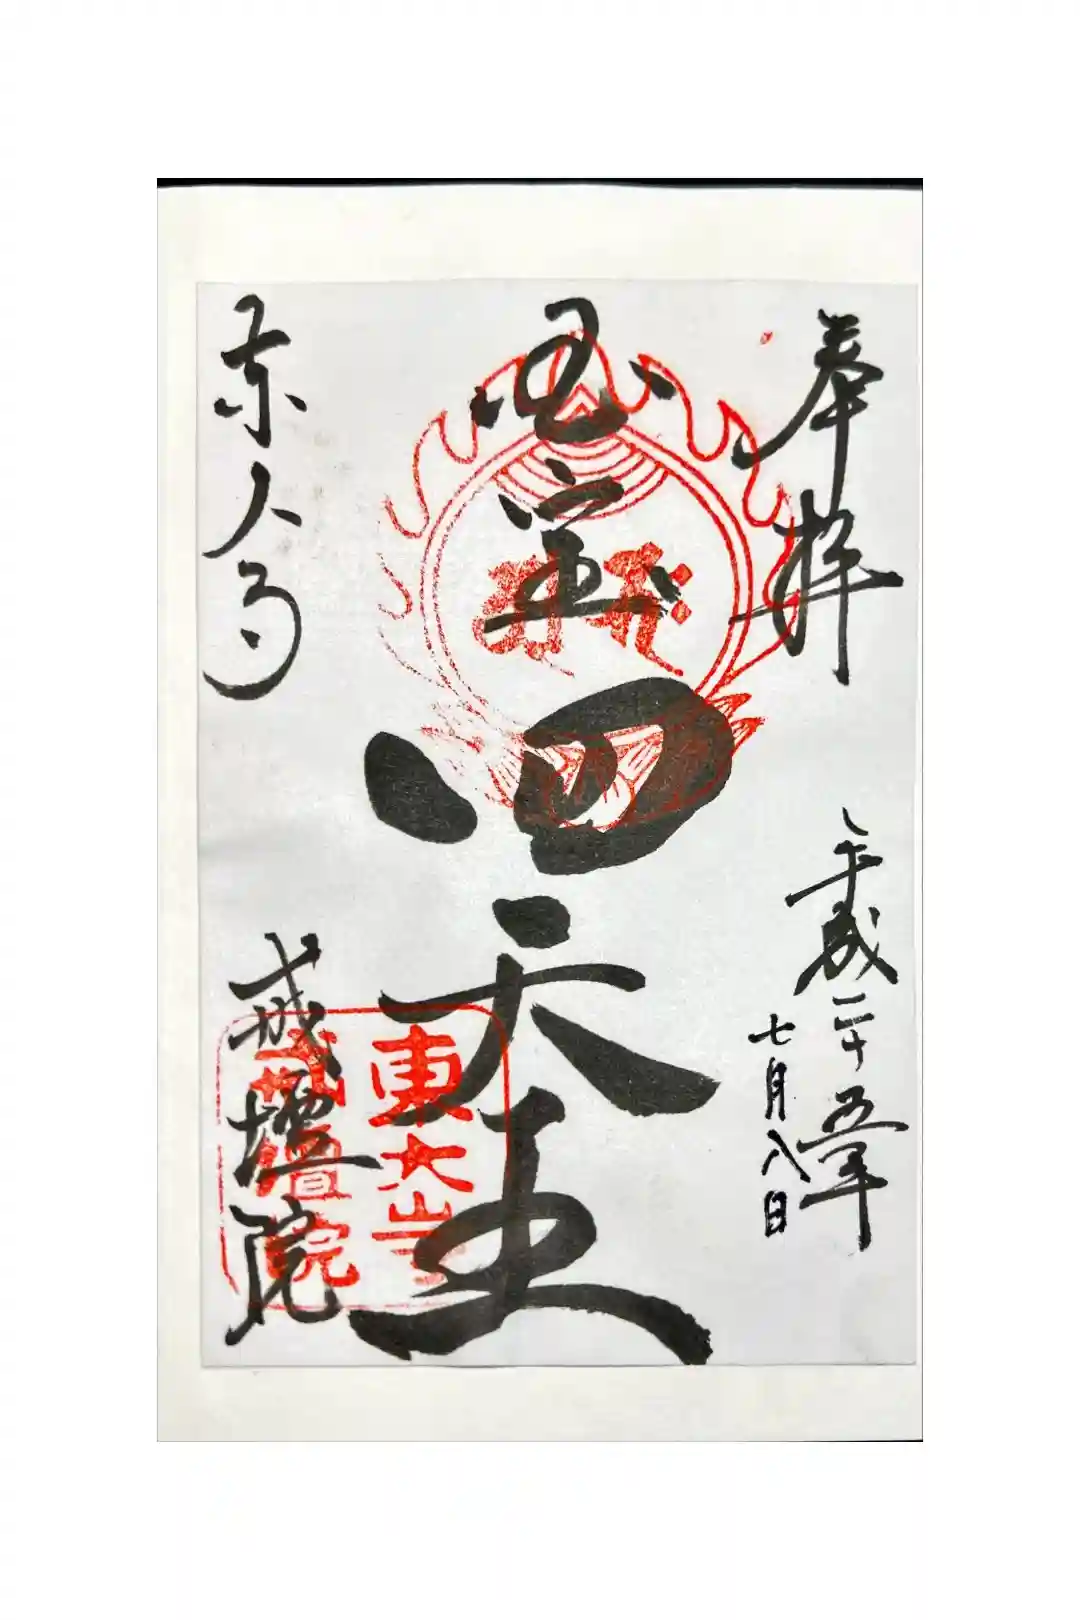 奉拝
平成二十五年
七月八日
国宝
四天王
東大寺
戒壇院
東大寺
戒壇院